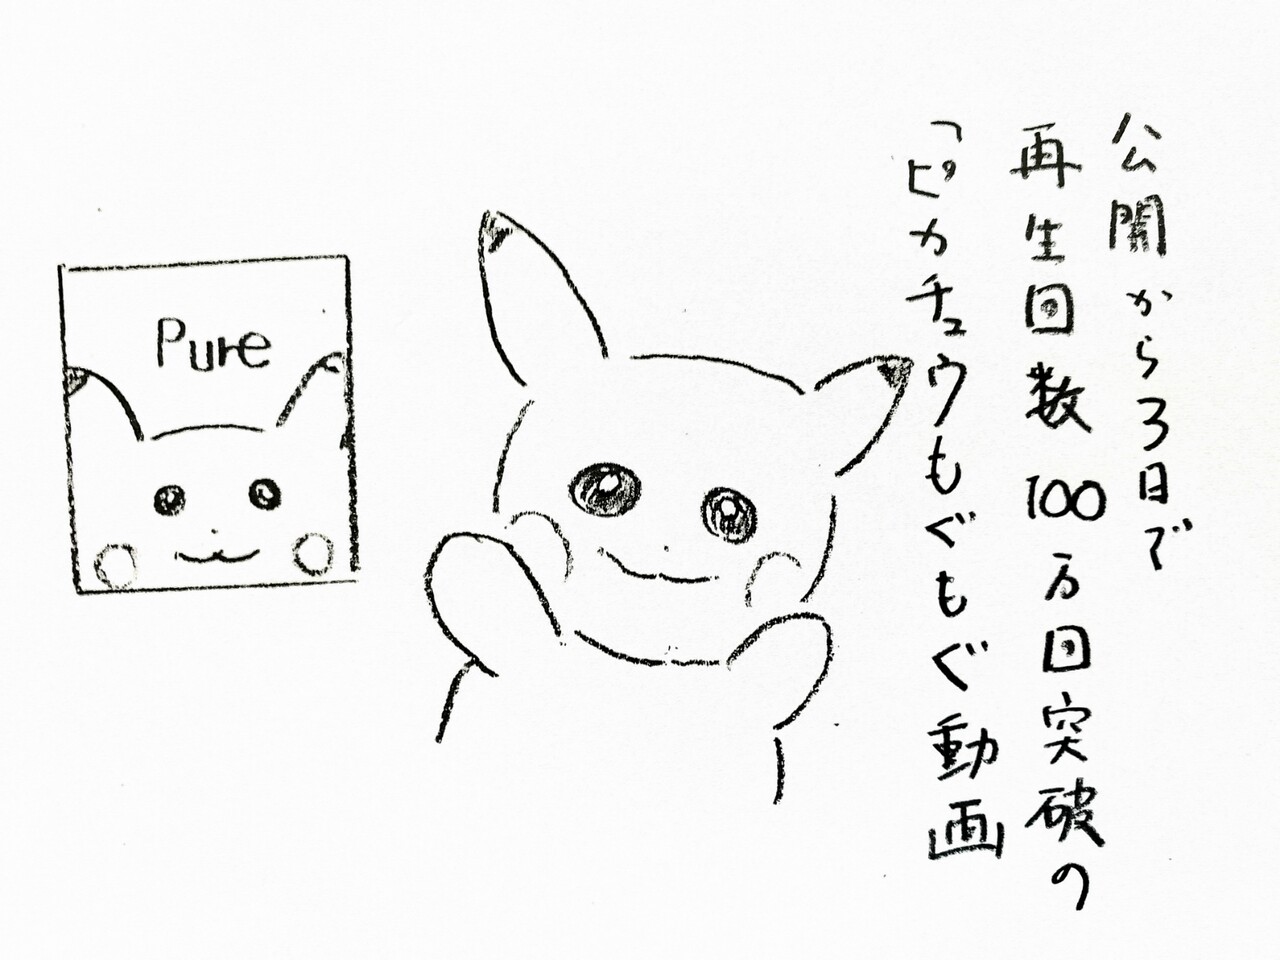 公開から3日で
再生回数100万回突破の
「ピカチュウもぐもぐ動画」
Pure